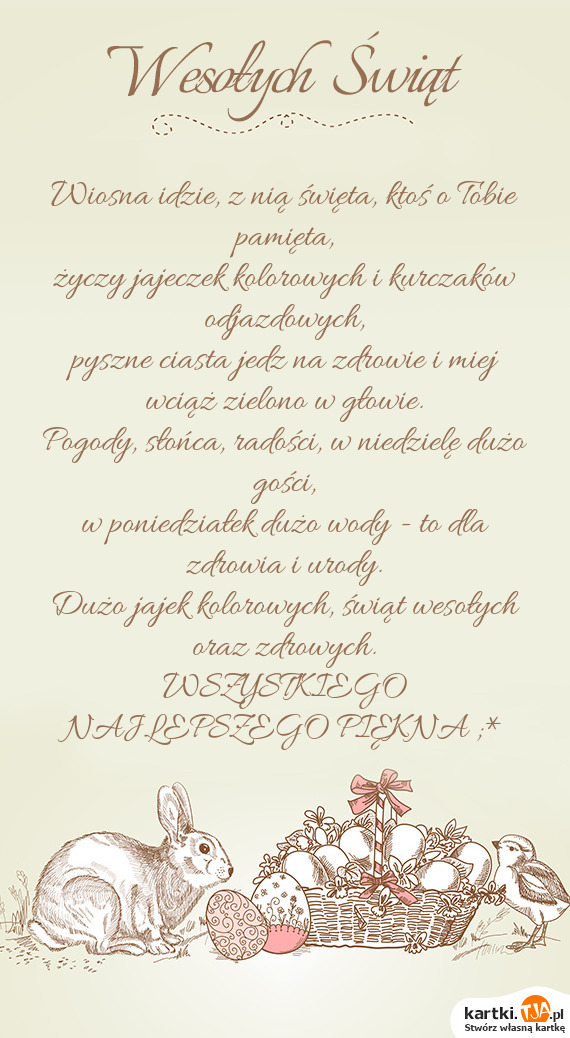 Wesołych Świąt
Wiosna idzie, z nią święta, ktoś o Tobie
pamięta,
życzy jajeczek kolorowych i kurczaków
odjazdowych,
pyszne ciasta jedz na zdrowie i miej
wciąż zielono w głowie.
Pogody, słońca, radości, w niedzielę dużo
gości,
w poniedziałek dużo wody - to dla
zdrowia i urody.
Dużo jajek kolorowych, świąt wesołych
oraz zdrowych.
WSZYSTKIEGO
NAJLEPSZEGO PIĘKNA ;*
kartki.TJA.pl
Stwórz własną kartkę